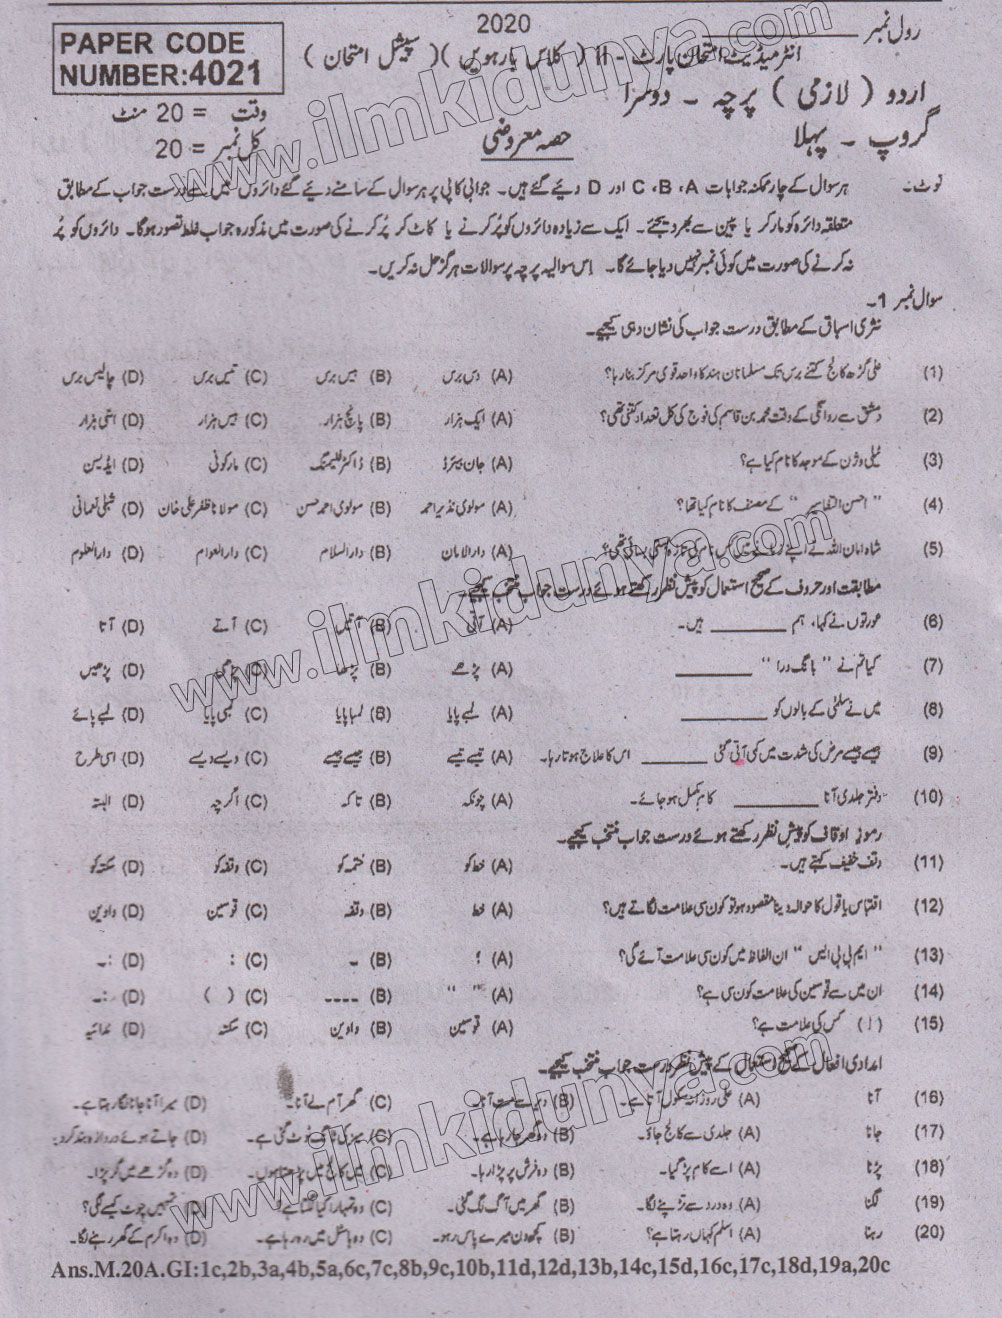 2020
رول نمبر
PAPER CODE
NUMBER:4021
انٹرمیڈیٹ امتحان پارٹ - II ( کلاس بارھویں )( سپیشل امتحان )
اردو ( لازمی ) پرچہ - دوسرا
وقت = 20 منٹ
گروپ - پہلا
حصہ معروضی
کل نمبر = 20
نوٹ۔ ہر سوال کے چار ممکنہ جوابات A ،B ،C اور D دیئے گئے ہیں۔ جوابی کاپی پر ہر سوال کے سامنے دیئے گئے دائروں میں سے درست جواب کے مطابق
متعلقہ دائرہ کو مارکر یا پین سے بھر دیجئے۔ ایک سے زیادہ دائروں کو پُر کرنے یا کاٹ کر پُر کرنے کی صورت میں مذکورہ جواب غلط تصور ہوگا۔ دائروں کو پُر
نہ کرنے کی صورت میں کوئی نمبر نہیں دیا جائے گا۔ اِس سوالیہ پرچہ پر سوالات ہرگز حل نہ کریں۔
سوال نمبر 1۔
نثری اسباق کے مطابق درست جواب کی نشان دہی کیجیے۔
(1) علی گڑھ کالج کتنے برس تک مسلمانان ہند کا واحد قومی مرکز بنا رہا؟ (A) دس برس (B) بیس برس (C) تیس برس (D) چالیس برس
(2) دمشق سے روانگی کے وقت محمد بن قاسم کی فوج کی کل تعداد کتنی تھی؟ (A) ایک ہزار (B) پانچ ہزار (C) بیس ہزار (D) اسّی ہزار
(3) ٹیلی وژن کے موجد کا نام کیا ہے؟ (A) جان بیئرڈ (B) ڈاکٹر فلیمنگ (C) مارکونی (D) ایڈیسن
(4) " احسن التفاسیر " کے مصنف کا نام کیا تھا؟ (A) مولوی نذیر احمد (B) مولوی احمد حسن (C) مولانا ظفر علی خان (D) شبلی نعمانی
(5) شاہ امان اللہ نے اپنے نام کی تازہ بستی بسائی تھی؟ (A) دارالامان (B) دارالسلام (C) دارالعوام (D) دارالعلوم
مطابقت اور حروف کے صحیح استعمال کو پیش نظر رکھتے ہوئے درست جواب منتخب کیجیے۔
(6) عورتوں نے کہا، ہم ______ ہیں۔ (A) آتی (B) آتیں (C) آتے (D) آتا
(7) کیا تم نے " بانگ درا " ______ (A) پڑھے (B) پڑھا (C) پڑھی (D) پڑھیں
(8) میں نے سلمٰی کے بالوں کو ______ (A) لمبے پایا (B) لمبا پایا (C) لمبی پایا (D) لمبے پائے
(9) جیسے جیسے مرض کی شدت میں کمی آتی گئی ______ اس کا علاج ہوتا رہا۔ (A) تیسے تیسے (B) جیسے جیسے (C) ویسے ویسے (D) اسی طرح
(10) دفتر جلدی آنا ______ کام مکمل ہو جائے۔ (A) چونکہ (B) تاکہ (C) اگرچہ (D) البتہ
رموز اوقاف کو پیش نظر رکھتے ہوئے درست جواب منتخب کیجیے۔
(11) وقف خفیف کہتے ہیں۔ (A) خط کو (B) ختمہ کو (C) وقفہ کو (D) سکتہ کو
(12) اقتباس یا قول کا حوالہ دینا مقصود ہو تو کون سی علامت لگاتے ہیں؟ (A) خط (B) وقفہ (C) قوسین (D) واوین
(13) " ایم بی بی ایس " ان الفاظ میں کون سی علامت آئے گی؟ (A) ؛ (B) ۔ (C) : (D) :۔
(14) ان میں سے قوسین کی علامت کون سی ہے؟ (A) " " (B) ---- (C) ( ) (D) :۔
(15) ( ! ) کس کی علامت ہے؟ (A) قوسین (B) واوین (C) سکتہ (D) ندائیہ
امدادی افعال کے صحیح استعمال کے پیش نظر درست جواب منتخب کیجیے۔
(16) آنا (A) علی روزانہ سکول آتا ہے۔ (B) دیر سے مت آنا۔ (C) گھر آم لے آنا۔ (D) میرا آنا جانا لگا رہتا ہے۔
(17) جانا (A) جلدی سے کالج جاؤ۔ (B) وہ گھر جا رہا ہے۔ (C) میز کی ٹانگ ٹوٹ گئی ہے۔ (D) جاتے ہوئے دروازہ بند کر دو۔
(18) پڑنا (A) اسے کام پڑ گیا۔ (B) وہ فرش پر پڑا رہا۔ (C) میں کالج میں پڑھتا ہوں۔ (D) وہ گڑھے میں گر پڑا۔
(19) لگنا (A) وہ درد سے تڑپنے لگا۔ (B) گھر میں آگ لگ گئی۔ (C) وہ تمھارا کیا لگتا ہے؟ (D) تمہیں چوٹ کیسے لگی؟
(20) رہنا (A) اسلم کہاں رہتا ہے؟ (B) کچھ دن میرے پاس رہو۔ (C) وہ ہاسٹل میں رہ رہا ہے۔ (D) وہ اکرم کے گھر رہنے لگا۔
Ans.M.20A.GI:1c,2b,3a,4b,5a,6c,7c,8b,9c,10b,11d,12d,13b,14c,15d,16c,17c,18d,19a,20c
www.ilmkidunya.com
www.ilmkidunya.com
www.ilmkidunya.com